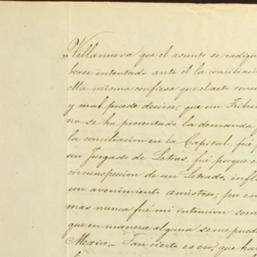 Villanueva que el asunto se radique
berse intentado ante él la conciliacio
ella misma confiesa que el acto
y mal puede decirse, que un Tribun
no se ha presentado la demanda,
la conciliacion en la Capital, fué
un Juzgado de Letras, fué porque
circunspeccion de un Letrado, infl
un avenimiento amistoso, pero en
mas nunca fué mi intencion some
que en manera alguna se me puede
Mexico. Tan cierto es eso, que hab